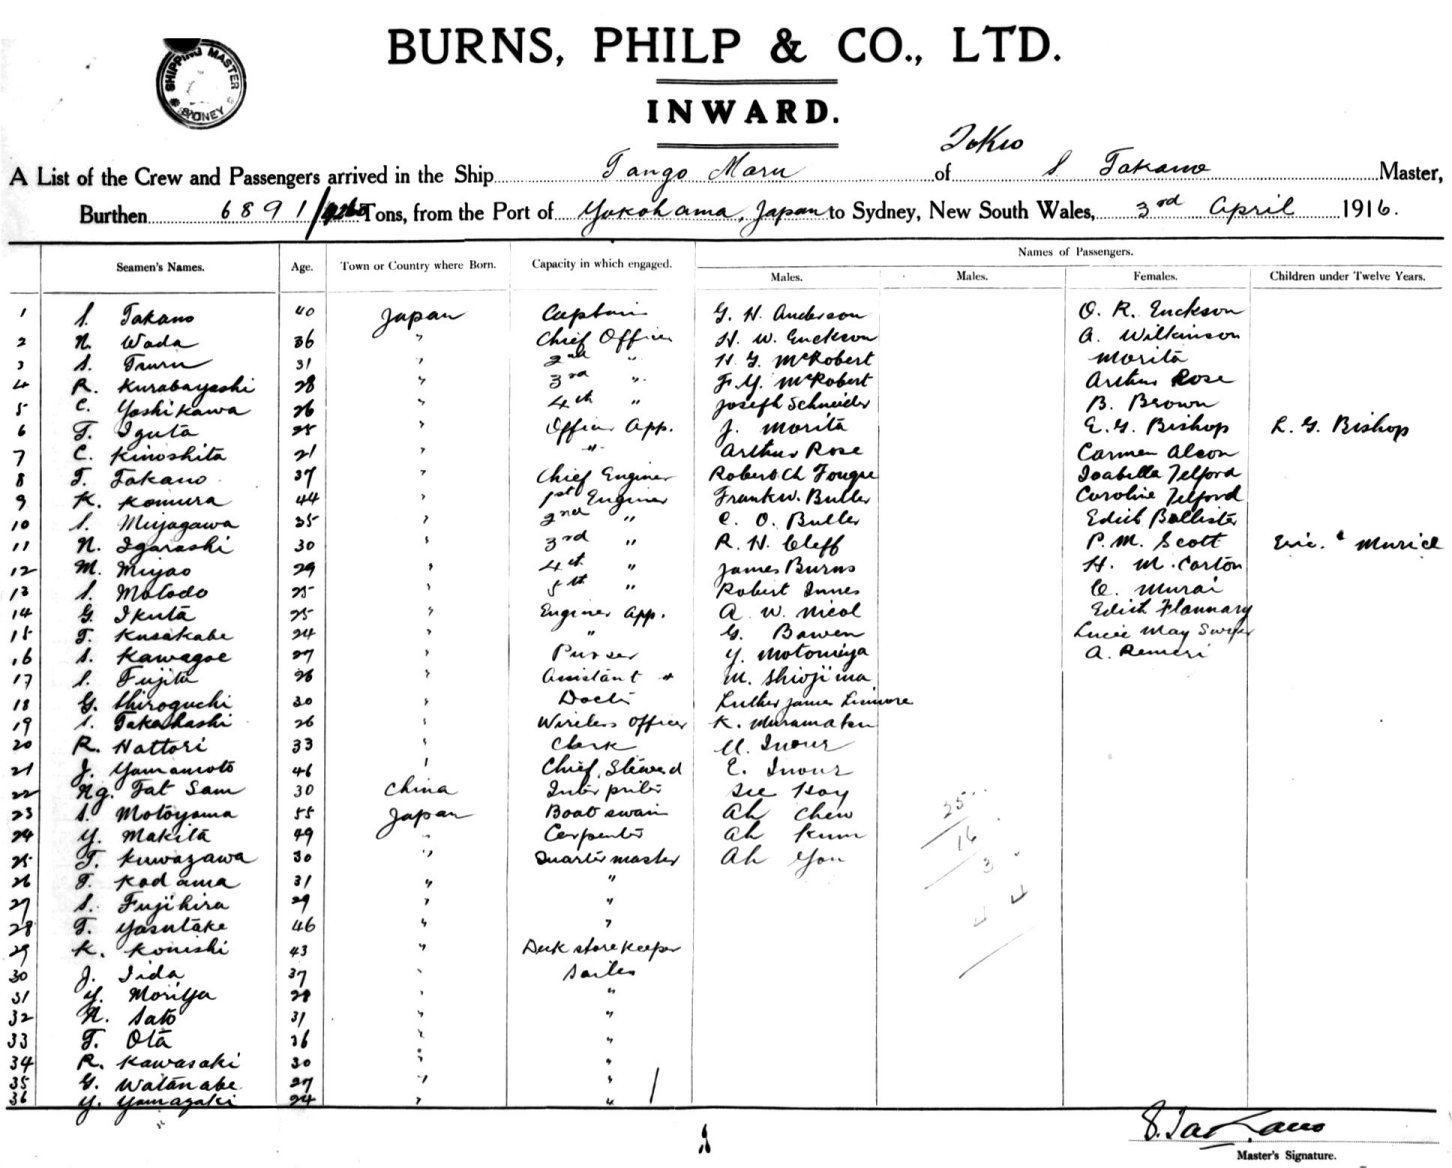 BURNS, PHILP & CO., LTD.
SHIPPING MASTER SYDNEY
INWARD.
Tokio
A List of the Crew and Passengers arrived in the Ship Tango Maru of S Takano Master,
Burthen 6891/ Tons, from the Port of Yokohama, Japan to Sydney, New South Wales, 3rd April 1916.
Names of Passengers.
Seamen's Names. Age. Town or Country where Born. Capacity in which engaged. Males. Males. Females. Children under Twelve Years.
1 S. Takano 40 Japan Captain G. H. Anderson O. R. Erickson
2 N. Wada 36 " Chief Officer H. W. Erickson A. Wilkinson
3 S. 31 " 2nd " H. G. McRobert Morita
4 R. Kurabayashi 28 " 3rd " F. Y. McRobert Arthur Rose
5 C. Yoshikawa 26 " 4th " Joseph Schneider B. Brown
6 T. Iguta 25 " Officer App. J. Morita E. G. Bishop L. G. Bishop
7 C. Kinoshita 21 " " Arthur Rose Carmen Alcon
8 T. Takano 37 " Chief Enginer Robert Ch Isabella Telford
9 K. Komura 44 " 1st Enginer Frank W. Butler Caroline Telford
10 S. Miyagawa 35 " 2nd " C. O. Butler Edith Ballister
11 N. Igarashi 30 " 3rd " R. H. Cleff P. M. Scott Eric. & Muriel
12 M. Miyao 29 " 4th " James Burns H. M. Carton
13 S. Motodo 25 " 5th " Robert Innes C. Murai
14 G. Ikuta 25 " Enginer App. A. W. Nicol Edith Flannary
15 T. Kusakabe 24 " " G. Bowen Lucie May
16 S. Kawagoe 27 " Purser Y. Motomiya A. Remeri
17 S. Fujita 26 " Assistant " M. Shiojima
18 G. Shiroguchi 30 " Doctor Luther James
19 S. Takahashi 26 " Wireless Officer K. Muramatsu
20 R. Hattori 33 " Clerk U. Inoue
21 J. Yamamoto 46 " Chief Steward E. Inoue
22 Ng. Fat Sam 30 China Interpriter See Hoy
23 S. Motoyama 55 Japan Boatswain Ah Chew
24 Y. Makita 49 " Carpenter Ah Kum
25 T. Kuwazawa 30 " Quartermaster Ah You
26 T. Kodama 31 " "
27 S. Fujihira 29 " "
28 T. Yasutake 46 " "
29 K. Konishi 43 " Deck storekeeper
30 J. Iida 37 " Sailor
31 Y. Moriya 28 " "
32 N. Sato 31 " "
33 T. Ota 36 " "
34 R. Kawasaki 30 " "
35 G. Watanabe 27 " "
36 Y. Yamazaki 24 " "
25
16
3
S. Takano
Master's Signature.